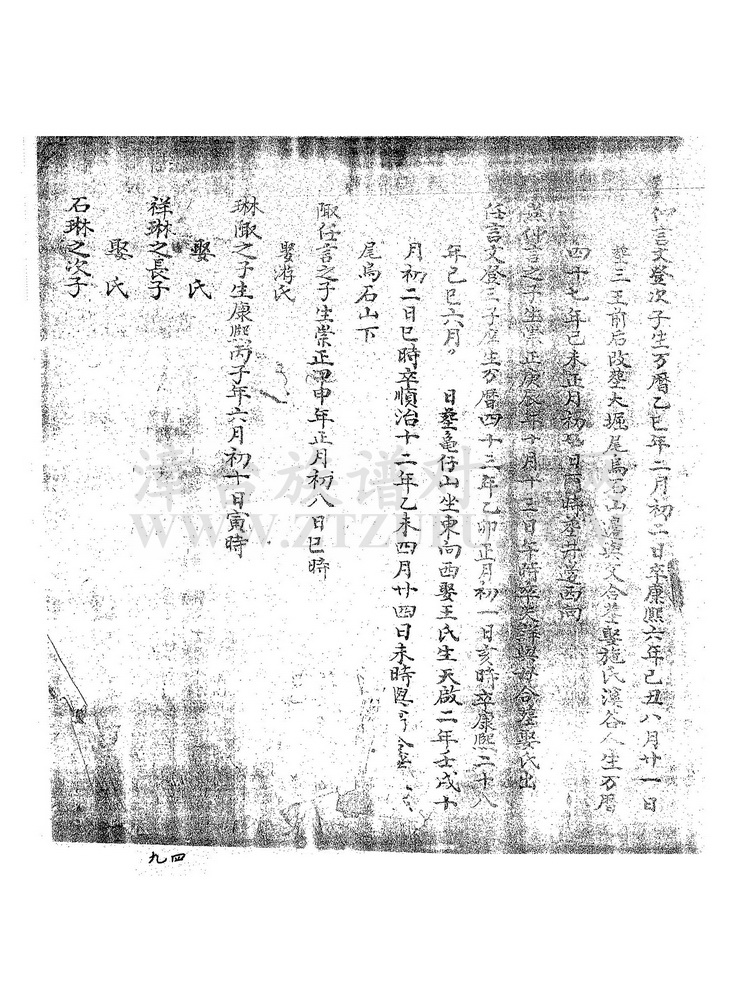 仲言文登次子生万曆乙巳年二月初二日卒康熙六年己丑八月廿一日
塟三王前后改塟大堀尾烏石山邊與父合塟娶施氏溪谷人生万曆
四十七年己未正月初 日酉時塟井邊西向
仲言之子生崇正庚辰年十月十三日午時卒失詳與母合塟娶氏出
任言文登三子 生万曆四十三年乙卯正月初一日亥時卒康熙二十八
年己巳六月 日塟龜仔山坐東向西娶王氏生天啟二年壬戌十
月初二日巳時卒順治十二年乙未四月廿四日未時與
尾烏石山下
陬任言之子生崇正甲申年正月初八日巳時
娶游氏
琳陬之子生康熙丙子年六月初十日寅時
娶氏
祥琳之長子
娶氏
石琳之次子
九四
漳台族谱对 网
WWW.ZTZUPU.C